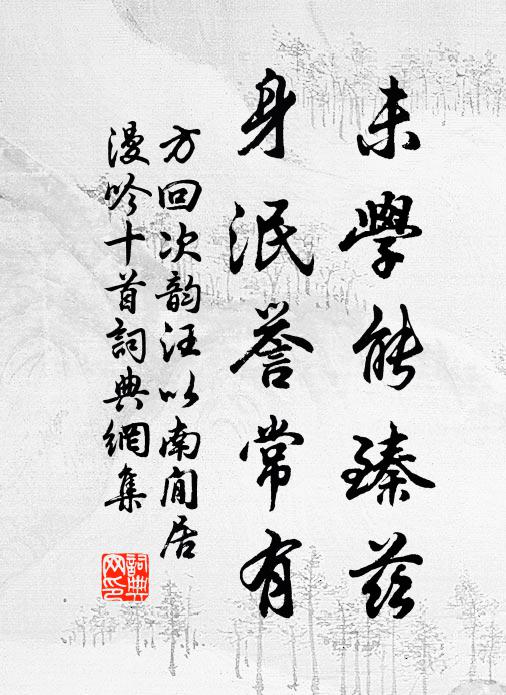 未學能臻兹
身泯誉常有
方回次韵汪以南闲居
漫吟十首詞典網集
詞典
网印